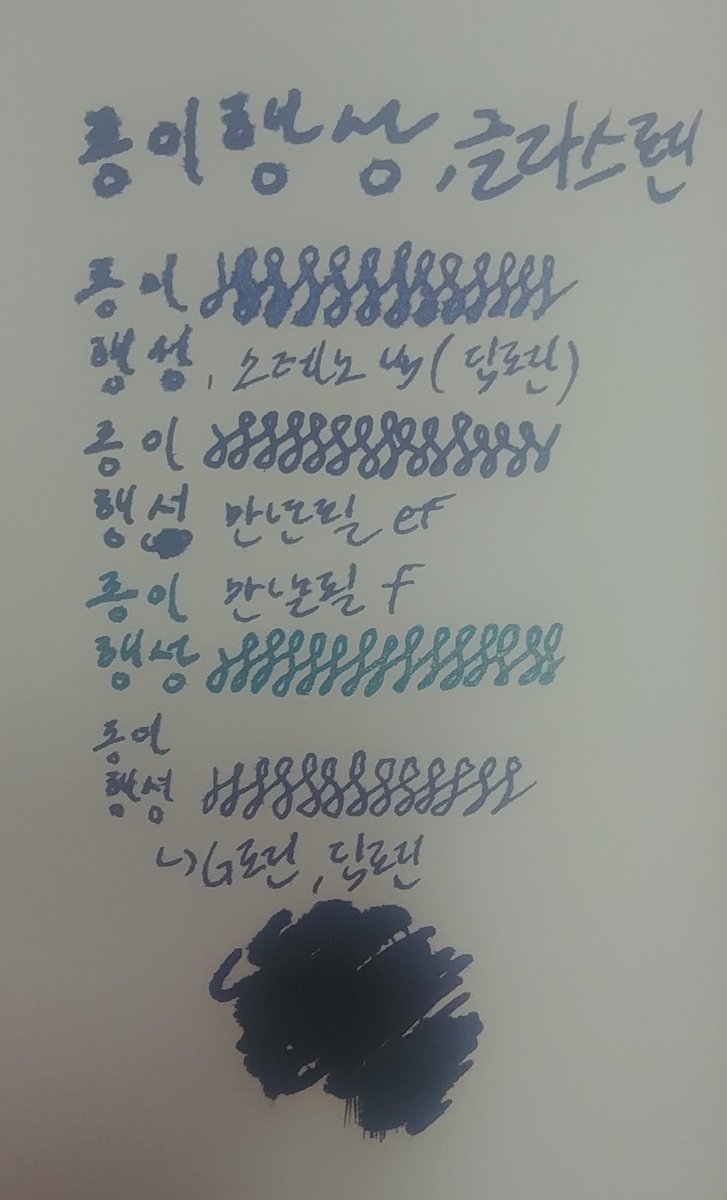 종이행성, 글라스펜
종이
행성, 스테노 닙(딥토린)
종이
행성 만년필 ef
종이 만년필 F
행성
종이
행성
↳G토린, 딥토린